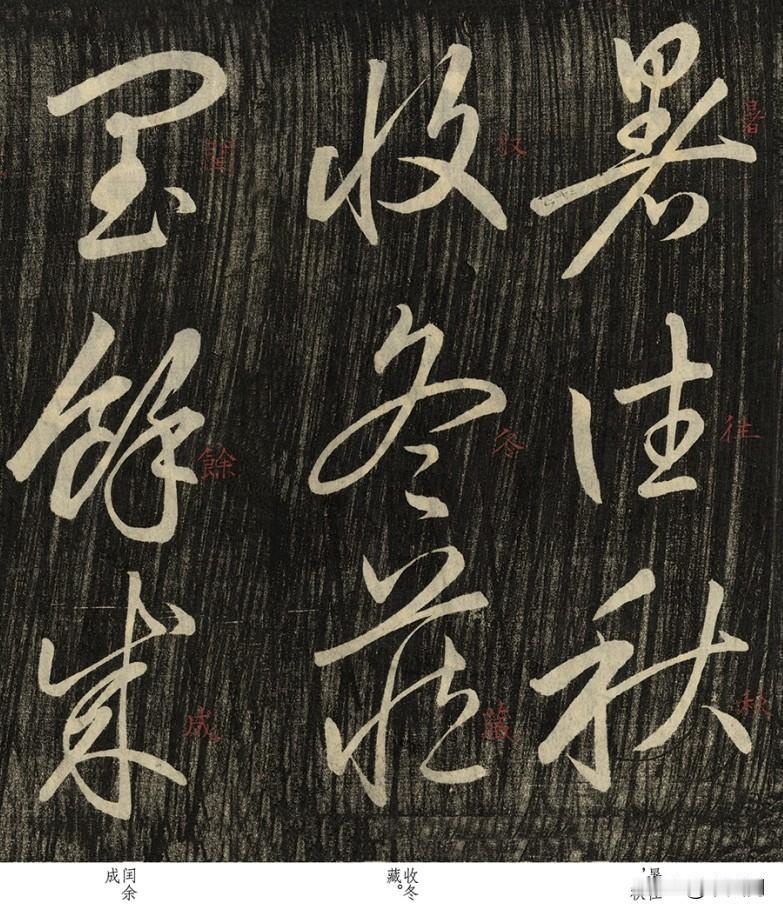 暑往秋
收冬藏
閏餘成
暑
往
秋
收
冬
藏
閏
餘
成
收冬
藏。
闰余
成